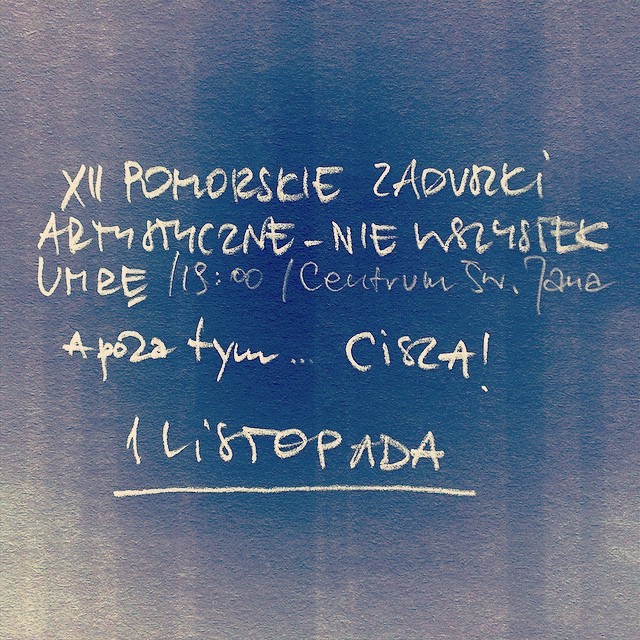 XII POMORSKIE ZADUSZKI
ARTYSTYCZNE - NIE WSZYSTEK
UMRĘ /19:00 / Centrum Św. Jana
A poza tym... CISZA!
1 LISTOPADA